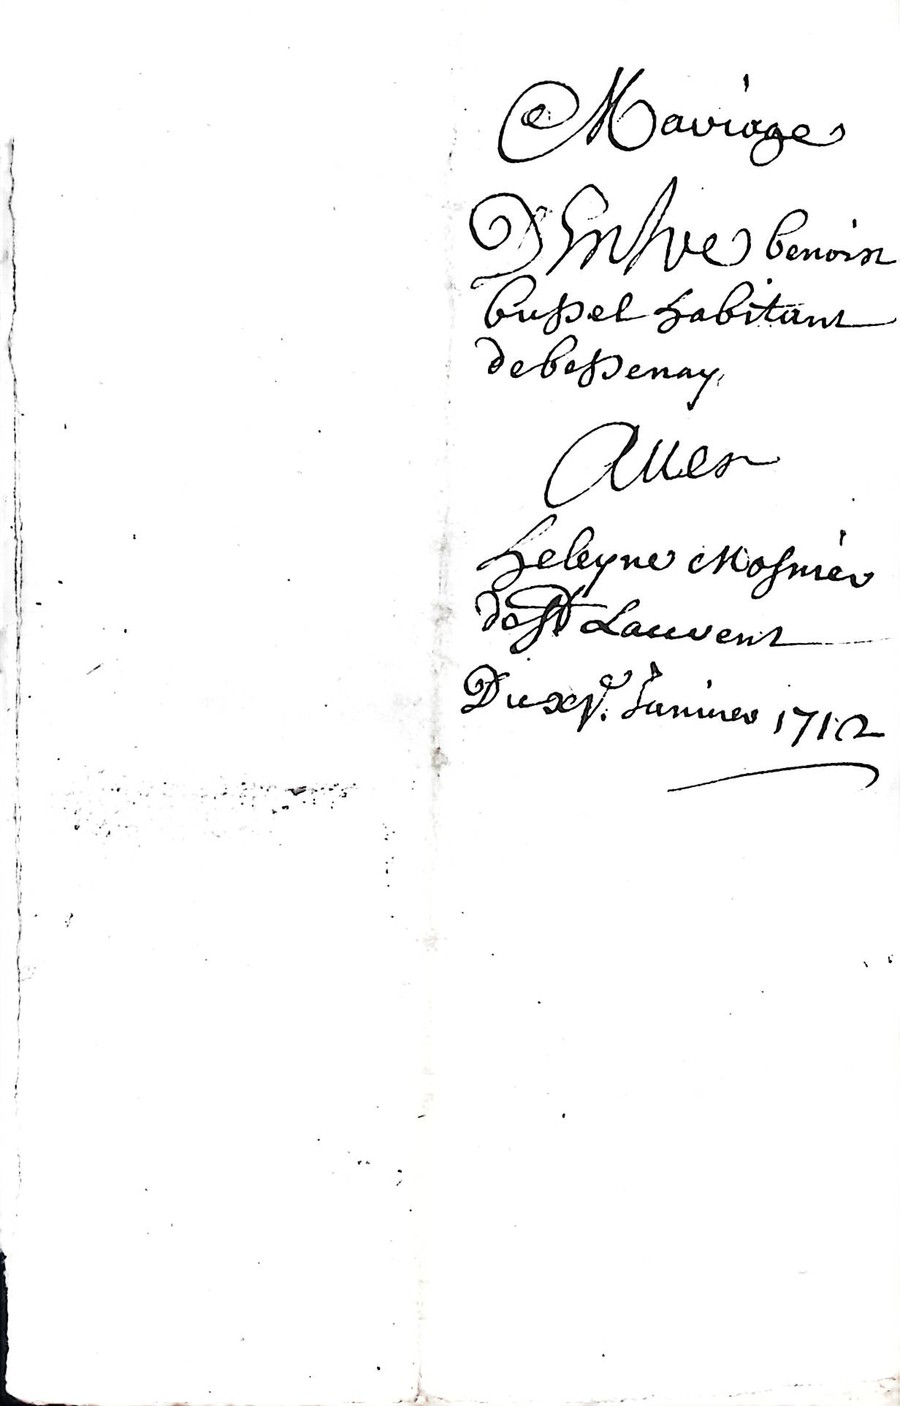 Mariage
D'Entre benoist
bussel habitant
de bessenay,
Avec
heleyne Mosnier
de St Laurent
Du xve. Janvier 1712